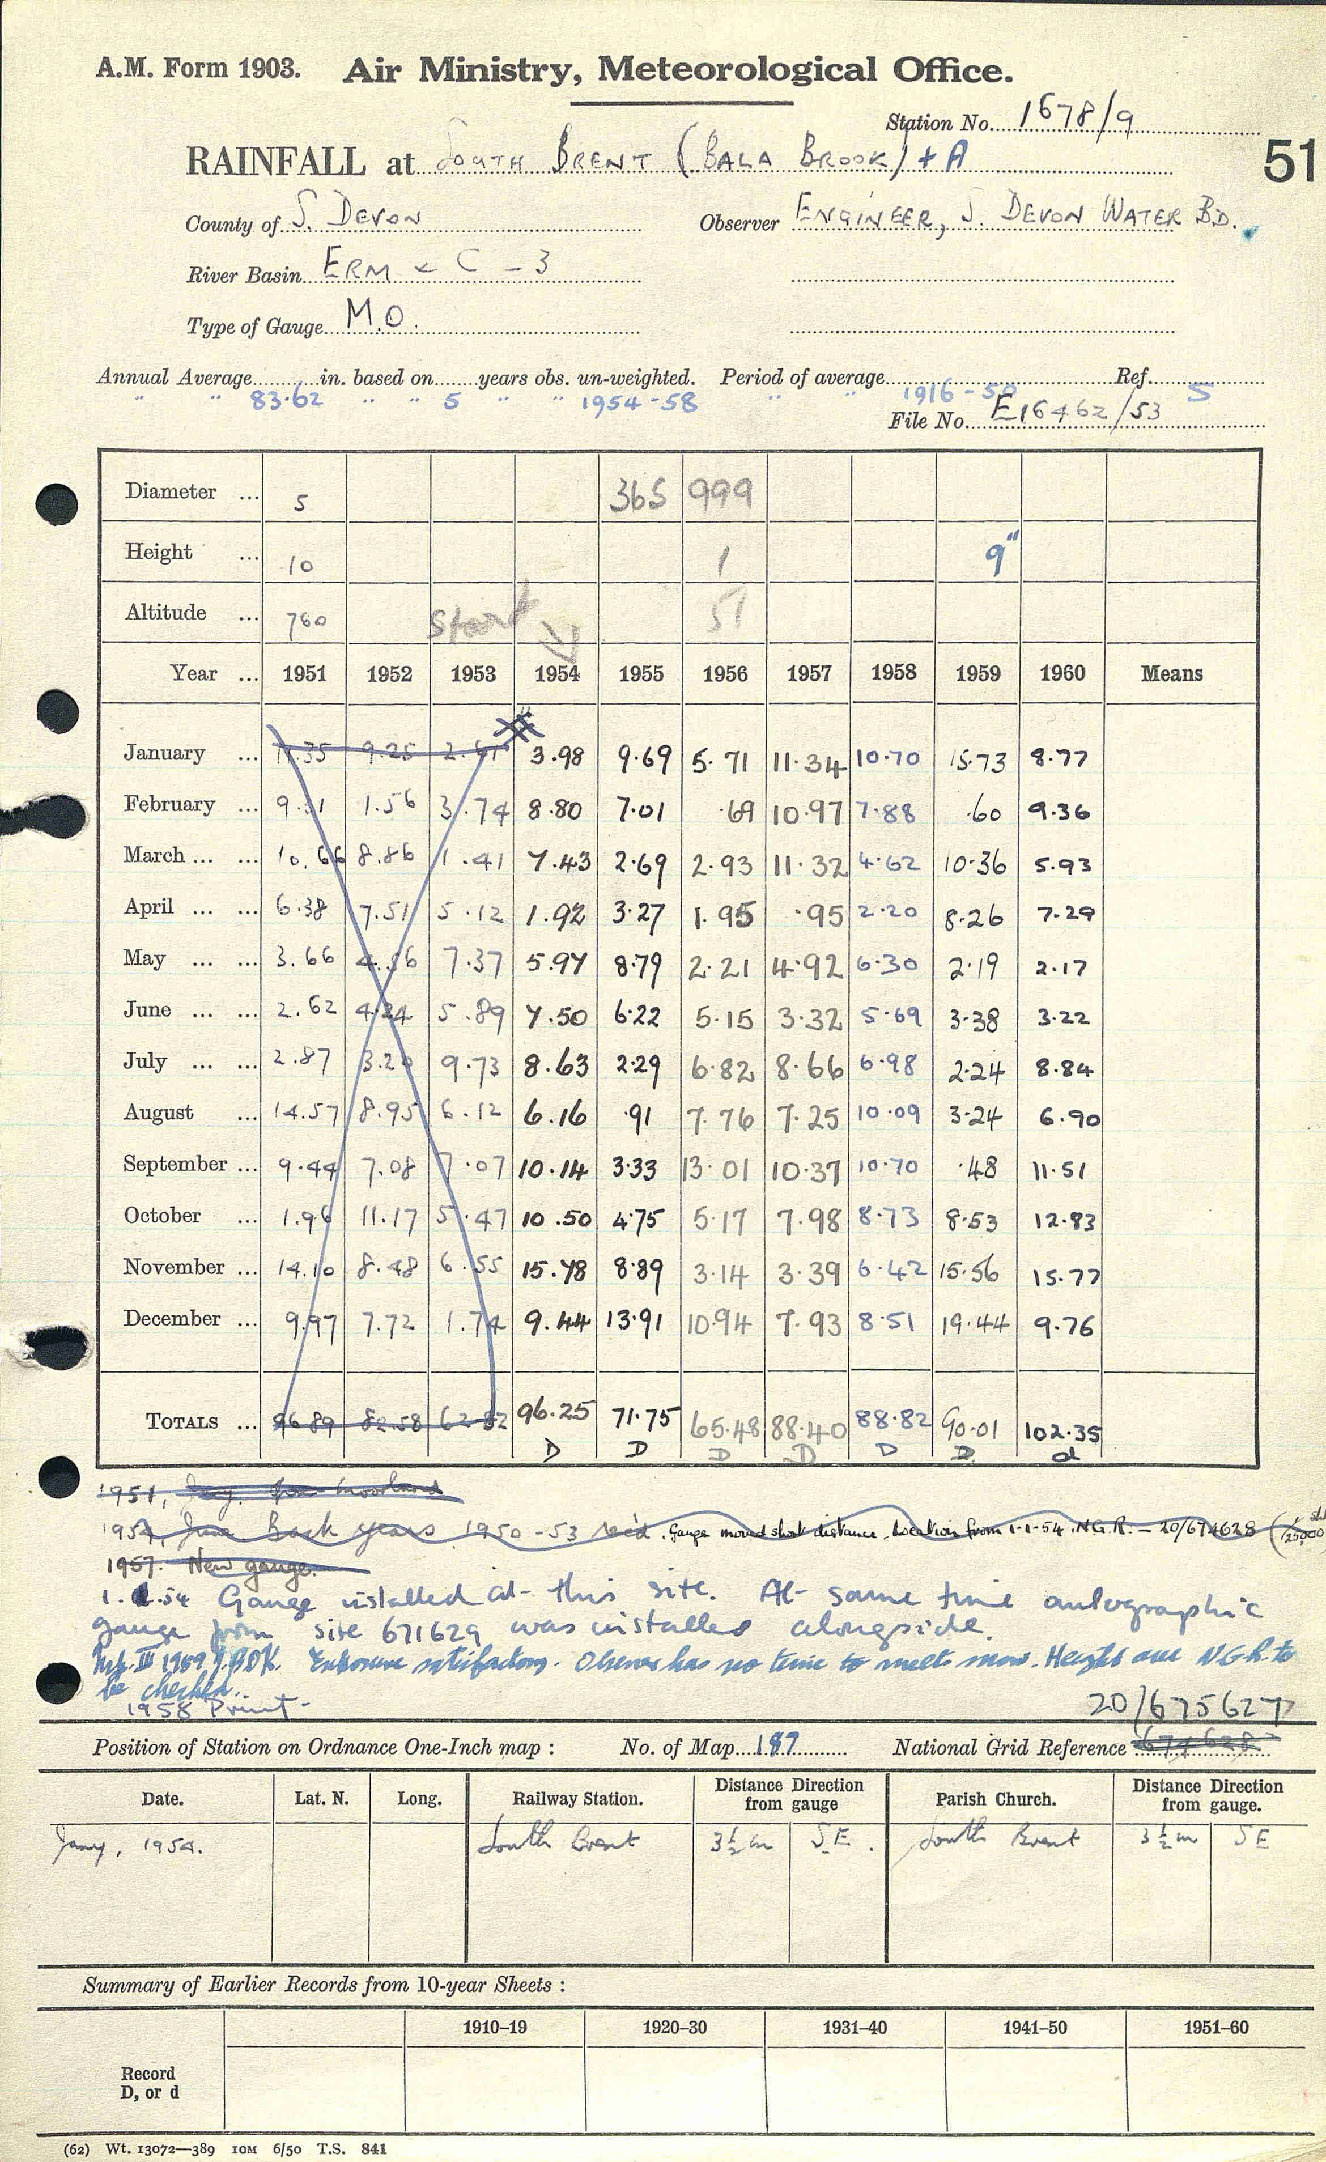 A.M. Form 1903. Air Ministry, Meteorological Office.
Station No. 1678/9
RAINFALL at SOUTH BRENT (BALA BROOK) + A
51
County of S. DEVON Observer ENGINEER, S. DEVON WATER BD.
River Basin ERM & C - 3
Type of Gauge M.O.
Annual Average in. based on years obs. un-weighted. Period of average 1916-50 Ref. S
" " 83.62 " " 5 " " 1954-58 " "
File No. E16462/53
Diameter ... 5 365 999
Height ... 10 1 9"
Altitude ... 760 Start 51
Year ... 1951 1952 1953 1954 1955 1956 1957 1958 1959 1960 Means
January ... 9.25 3.98 9.69 5.71 11.34 10.70 15.73 8.77
February ... 1.56 3.74 8.80 7.01 .69 10.97 7.88 .60 9.36
March ... ... 10.66 8.86 1.41 7.43 2.69 2.93 11.32 4.62 10.36 5.93
April ... ... 6.38 7.51 5.12 1.92 3.27 1.95 .95 2.20 8.26 7.29
May ... ... 3.66 4.56 7.37 5.97 8.79 2.21 4.92 6.30 2.19 2.17
June ... ... 2.62 4.24 5.89 7.50 6.22 5.15 3.32 5.69 3.38 3.22
July ... ... 2.87 9.73 8.63 2.29 6.82 8.66 6.98 2.24 8.84
August ... 14.57 8.95 6.12 6.16 .91 7.76 7.25 10.09 3.24 6.90
September ... 9.44 7.08 7.07 10.14 3.33 13.01 10.37 10.70 .48 11.51
October ... 1.96 11.17 5.47 10.50 4.75 5.17 7.98 8.73 8.53 12.83
November ... 14.10 8.48 6.55 15.78 8.89 3.14 3.39 6.42 15.56 15.77
December ... 9.97 7.72 1.74 9.44 13.91 10.94 7.93 8.51 19.44 9.76
TOTALS ... 96.89 82.58 62.82 96.25 71.75 65.48 88.40 88.82 90.01 102.35
D D D D D D d
1951,
1954, June Back years 1950-53 rec'd. Gauge moved short distance. Location from 1-1-54. N.G.R. - 20/674628
1957. New gauge.
1.1.54 Gauge installed at this site. At same time autographic
gauge from site 671629 was installed alongside.
1959 Exposure satisfactory. Observer has no time to meet Height and N.G.R. to
be checked.
1958 Print
20/675627
Position of Station on Ordnance One-Inch map : No. of Map 187 National Grid Reference 674628
Date. Lat. N. Long. Railway Station. Distance from gauge Direction Parish Church. Distance from gauge. Direction
Jany, 1954. South Brent 3½ m S.E. South Brent 3½ m SE
Summary of Earlier Records from 10-year Sheets :
1910–19 1920–30 1931–40 1941–50 1951–60
Record
D, or d
(62) Wt. 13072—389 10M 6/50 T.S. 841